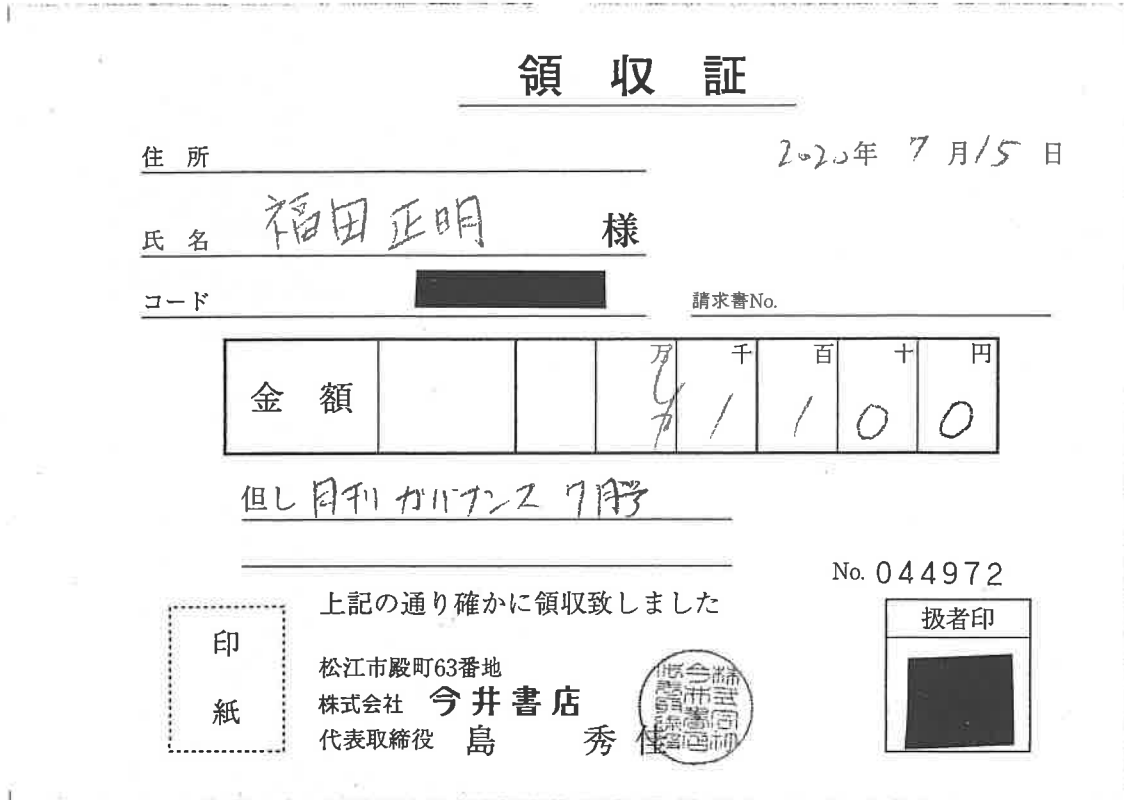 領収証
住所
2020年 7月15日
氏名 福田正明 様
コード
請求書No.
金額 万 千 百 十 円
1 1 0 0
但し 月刊 ガバナンス 7月号
No. 044972
上記の通り確かに領収致しました
扱者印
印紙
松江市殿町63番地
株式会社 今井書店
代表取締役 島 秀佳